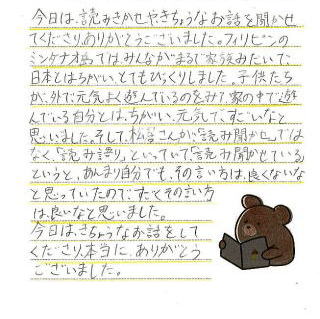 今日は、読みきかせやきちょうなお話を聞かせ
てくださり、ありがとうございました。フィリピンの
ミンダナオ島では、みんながまるで家族みたいで、
日本とはちがい、とてもびっくりしました。子供たち
が、外で元気よく遊んでいるのをみて、家の中で遊
んでいる自分とは、ちがい、元気で、すごいなと
思いました。そして、松居さんが、「読み聞かせ」では
なく、「読み語り」といっていて、「読み聞かせている」
というと、あんまり自分でも、その言い方は、良くないな
と思っていたので、すごくその言い方
は、良いなと思いました。
今日は、きちょうなお話をして
くださり、本当に、ありがとう
ございました。